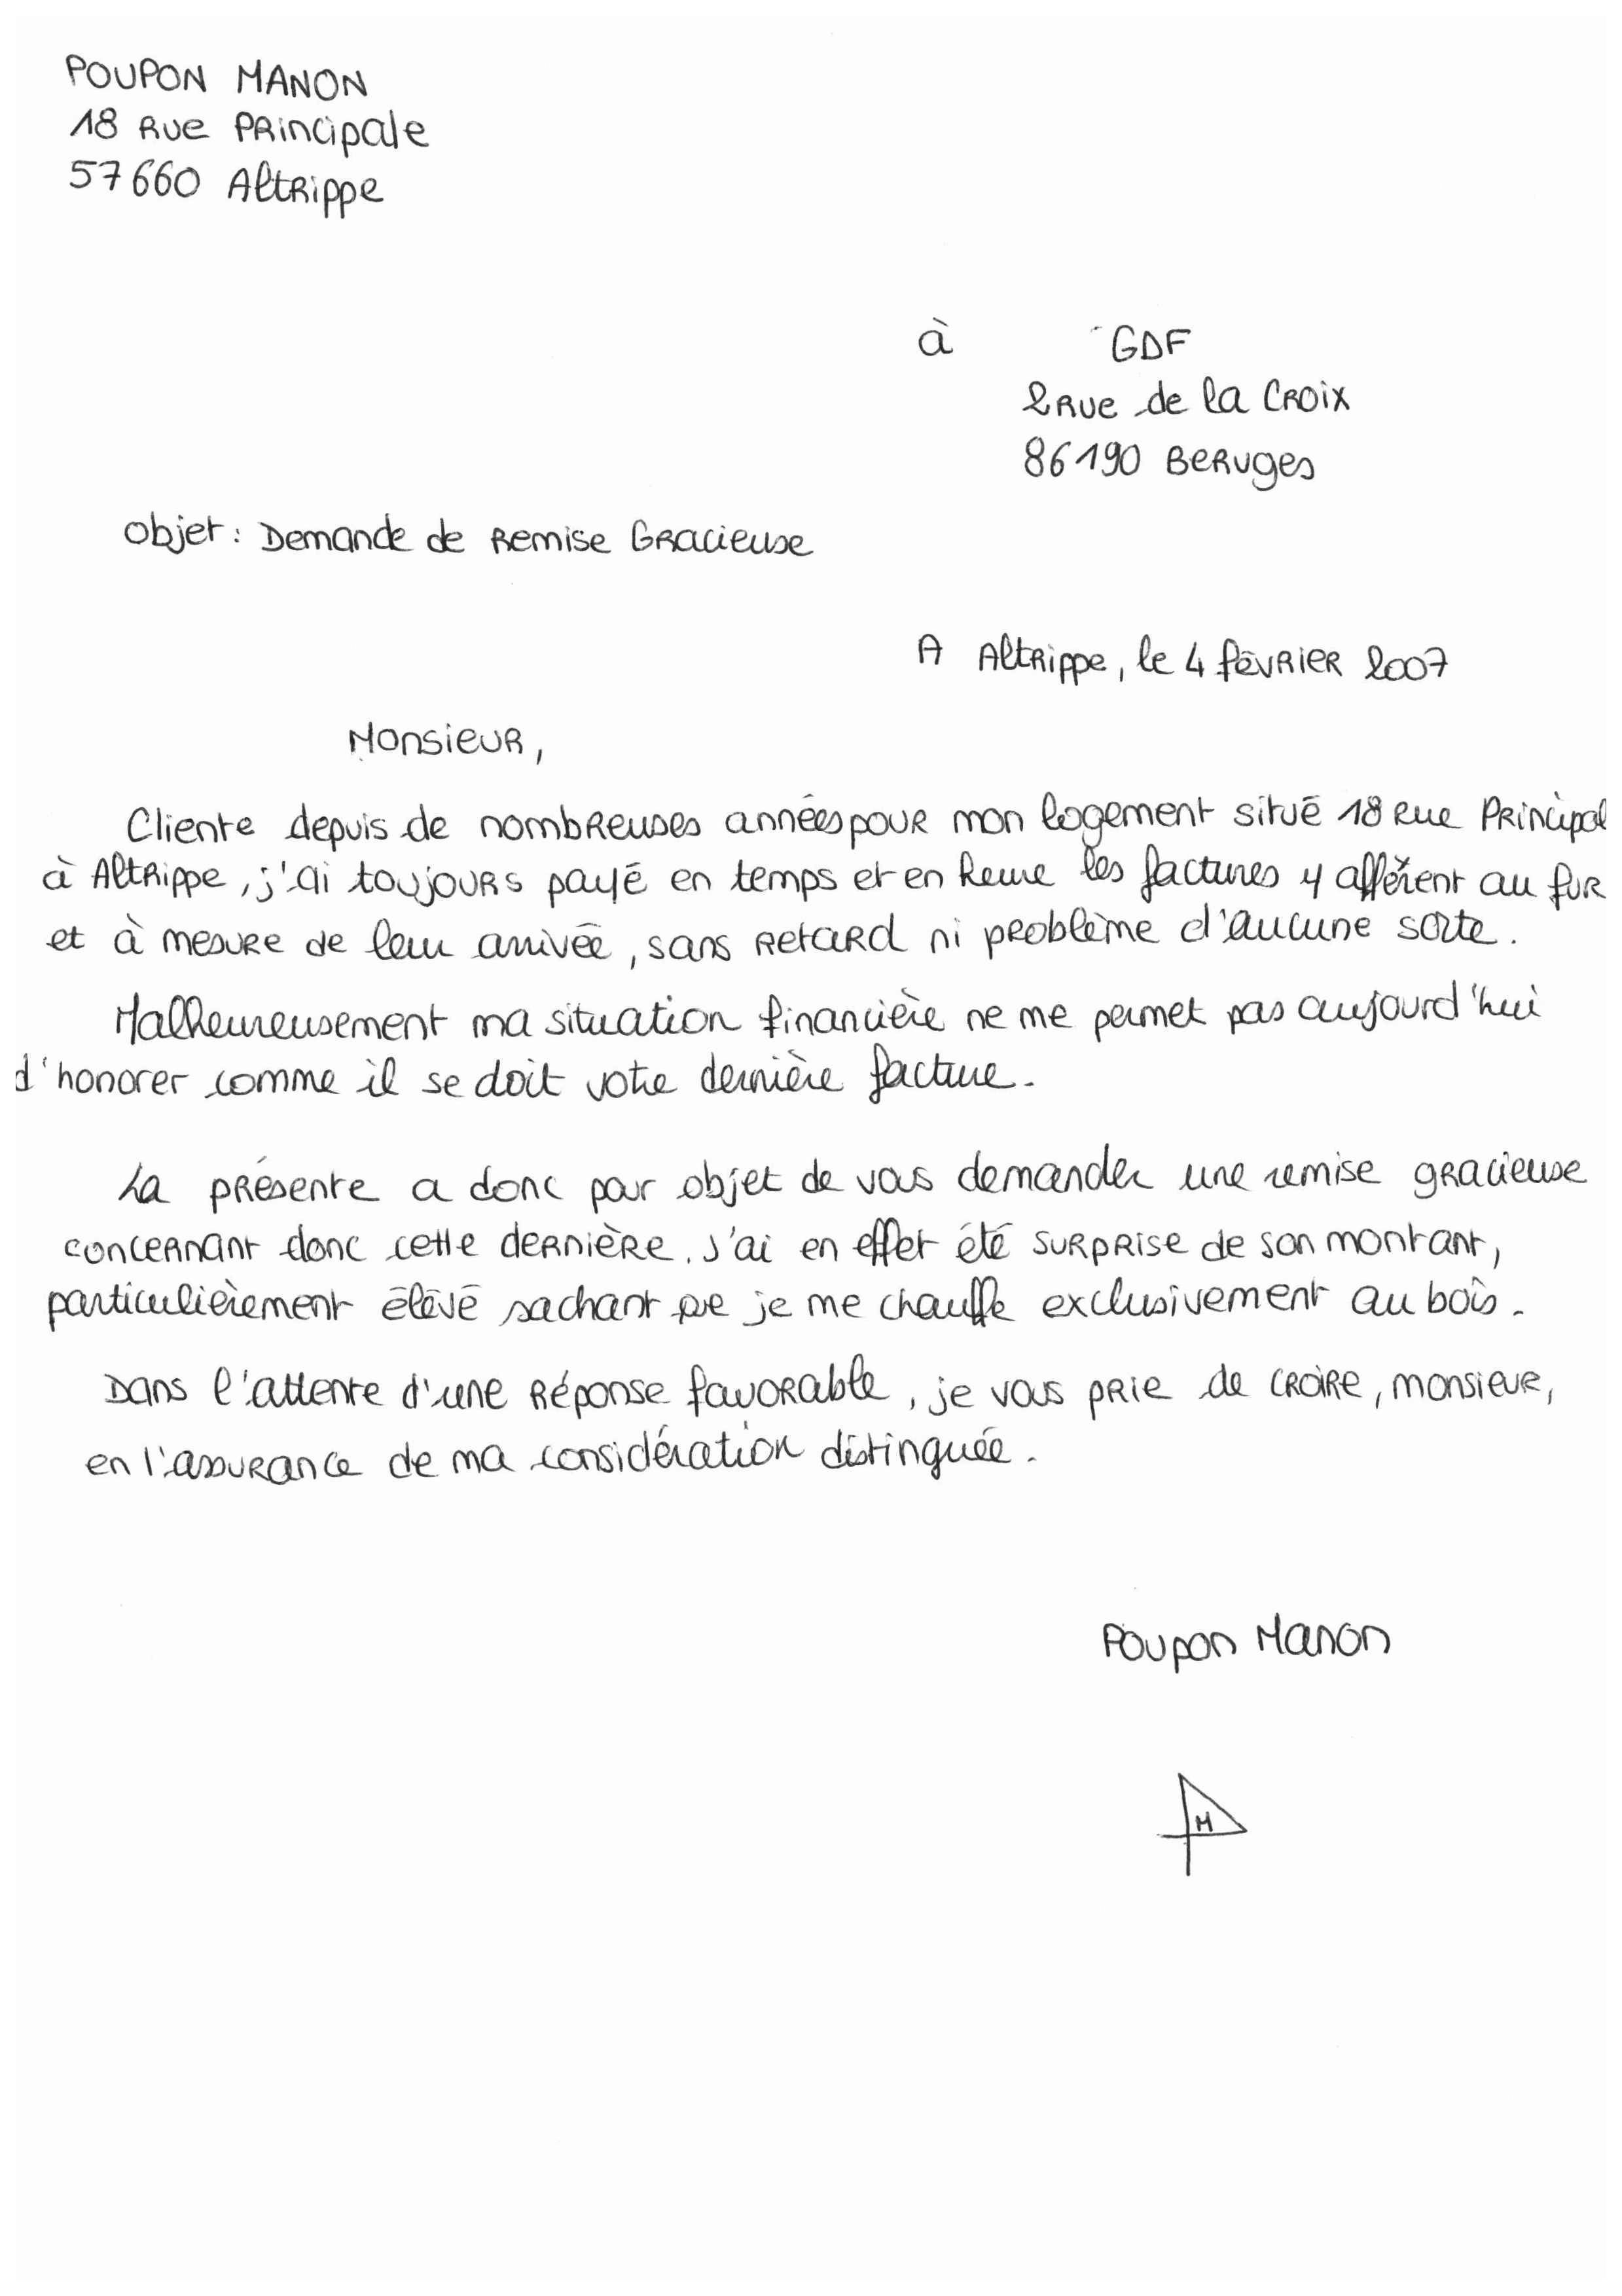 POUPON MANON
18 Rue Principale
57660 Altrippe
à GDF
2 Rue de la Croix
86190 Beruges
Objet : Demande de Remise Gracieuse
A Altrippe, le 4 février 2007
Monsieur,
Cliente depuis de nombreuses années pour mon logement situé 18 Rue Principal
à Altrippe, j'ai toujours payé en temps et en heure les factures y afférent au fur
et à mesure de leur arrivée, sans retard ni problème d'aucune sorte.
Malheureusement ma situation financière ne me permet pas aujourd'hui
d'honorer comme il se doit votre dernière facture.
La présente a donc pour objet de vous demander une remise gracieuse
concernant donc cette dernière. J'ai en effet été surprise de son montant,
particulièrement élevé sachant que je me chauffe exclusivement au bois.
Dans l'attente d'une réponse favorable, je vous prie de croire, monsieur,
en l'assurance de ma considération distinguée.
Poupon Manon
M